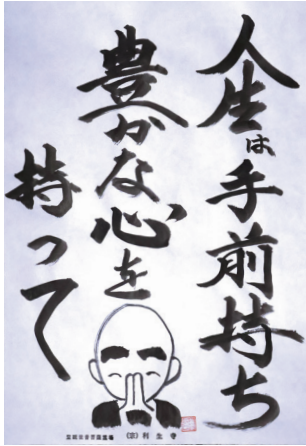 人生は手前持ち
豊かな心を
持って
(宗)利生寺